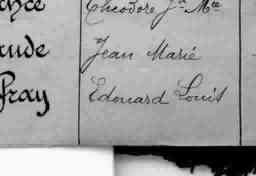 Theodore Jn Mie
aude Jean Marié
Pray Edouard Louis